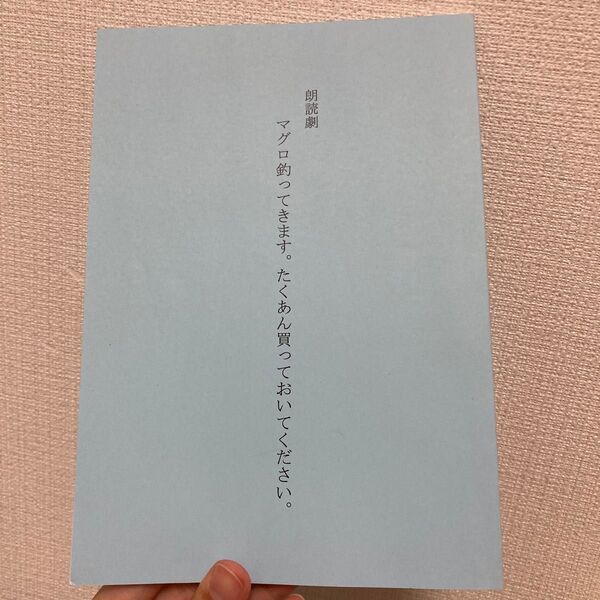 朗読劇
マグロ釣ってきます。たくあん買っておいてください。